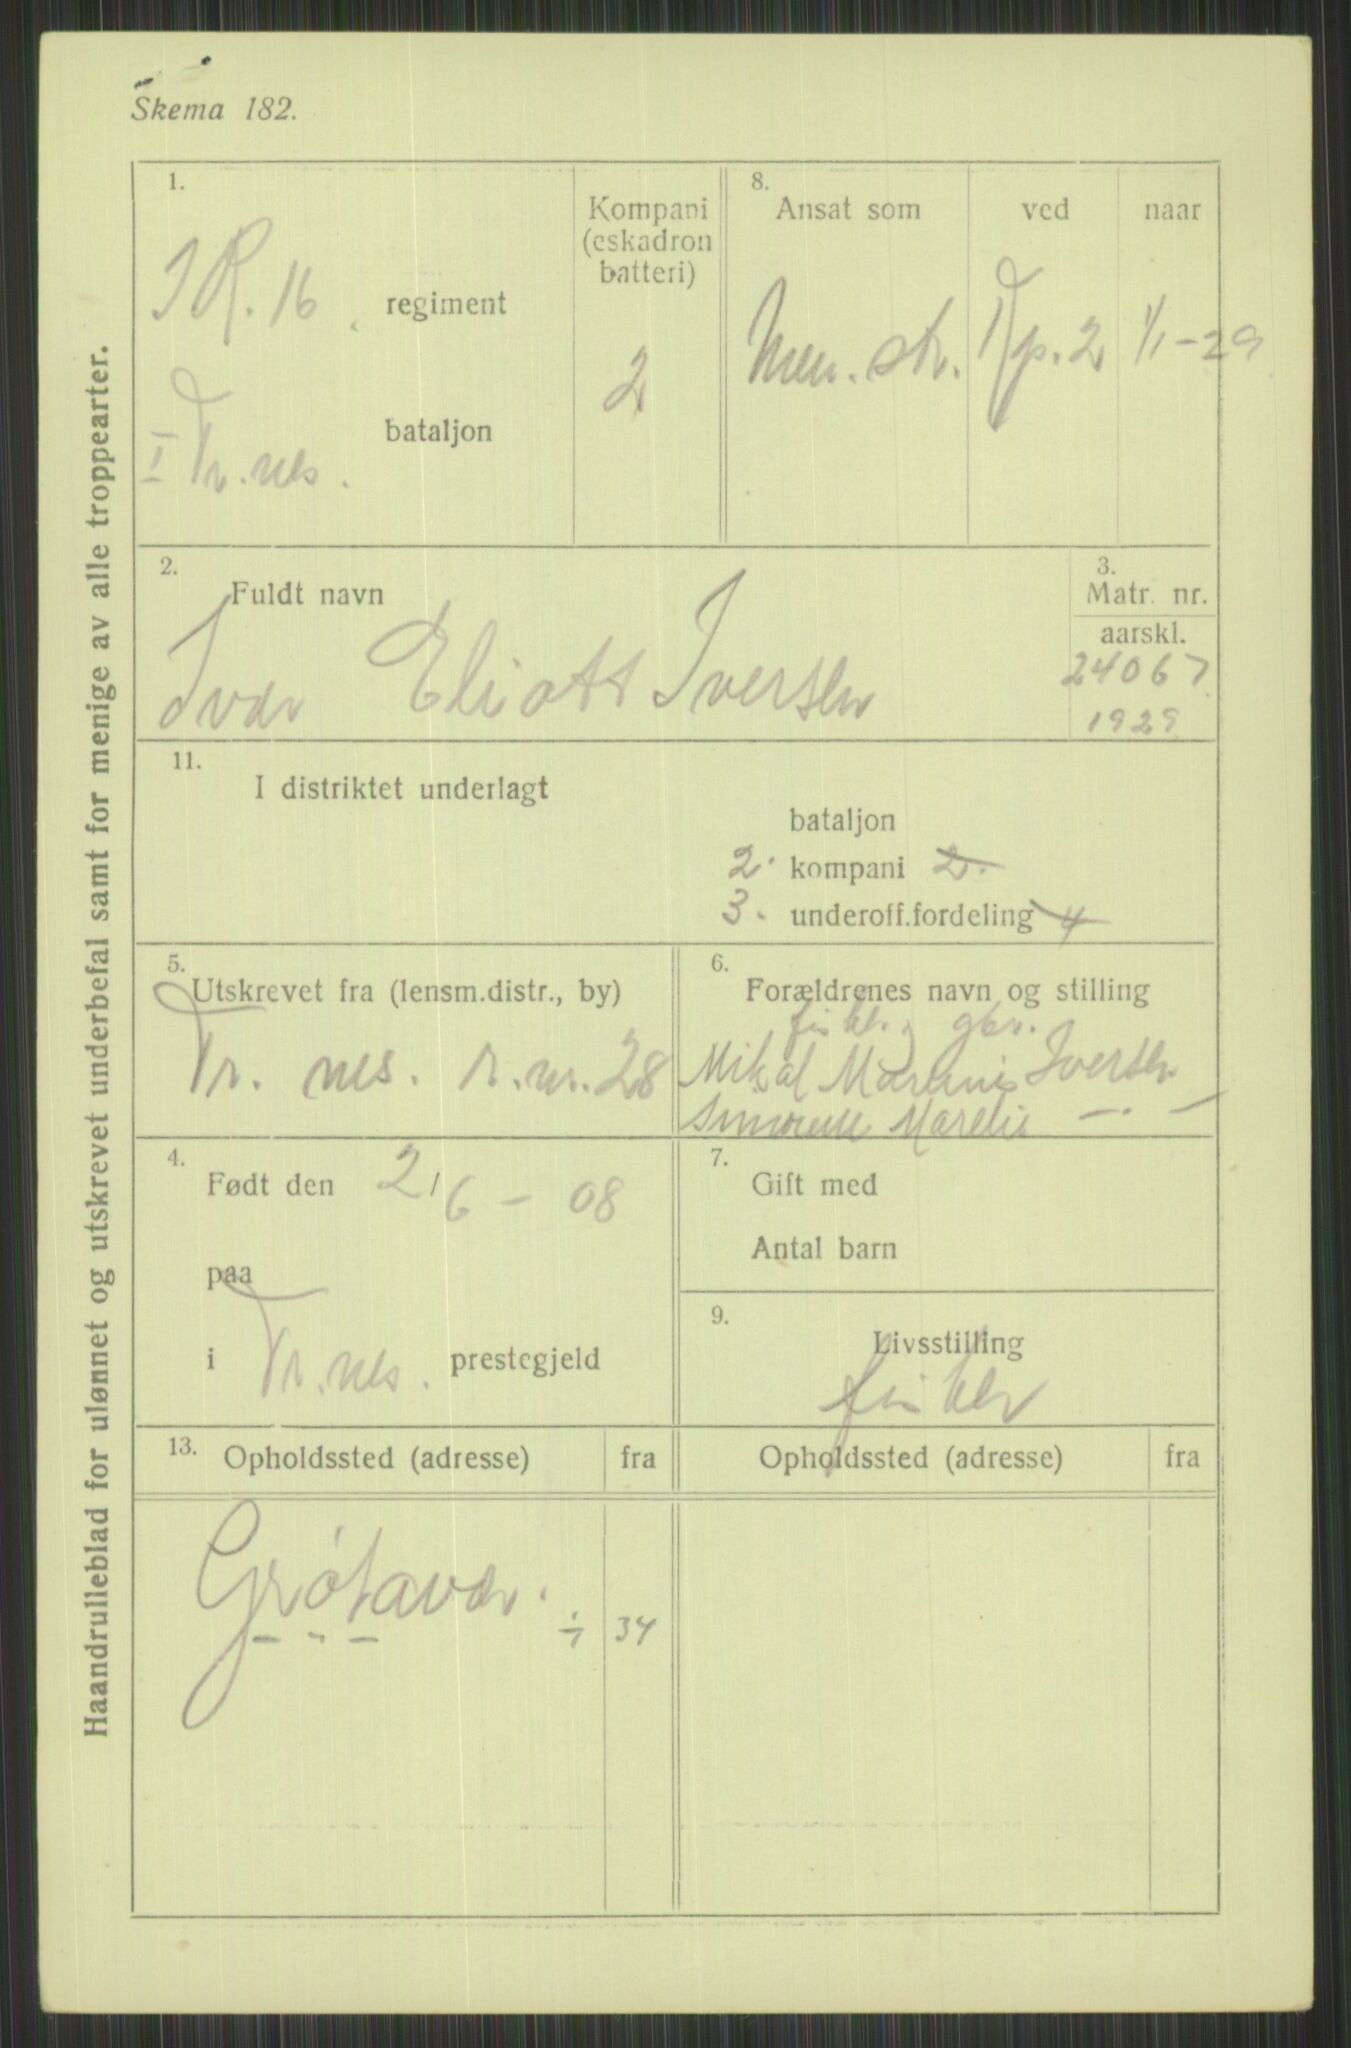 Skema 182.
Haandrulleblad for ulønnet og utskrevet underbefal samt for menige av alle troppearter.
1.
I R. 16. regiment
I Tr.nes. bataljon
Kompani
(eskadron
batteri)
2
8.
Ansat som
Men. str.
ved
Dp. 2
naar
1/1-29
2.
Fuldt navn
Ivar Eliott Iversen
3.
Matr. nr.
aarskl.
24067
1929
11.
I distriktet underlagt
bataljon
2. kompani 2.
3. underoff.fordeling 4
5.
Utskrevet fra (lensm.distr., by)
Tr. nes. r. nr. 28
6.
Forældrenes navn og stilling
fisker gbr.
Mikal Marenius Iversen
Simone Marelie —.—
4.
Født den 2/6 - 08
paa
i Tr.nes. prestegjeld
7.
Gift med
Antal barn
9.
Livsstilling
fisker
13.
Opholdssted (adresse)
fra
Opholdssted (adresse)
fra
Grøtavær. ÷ 34